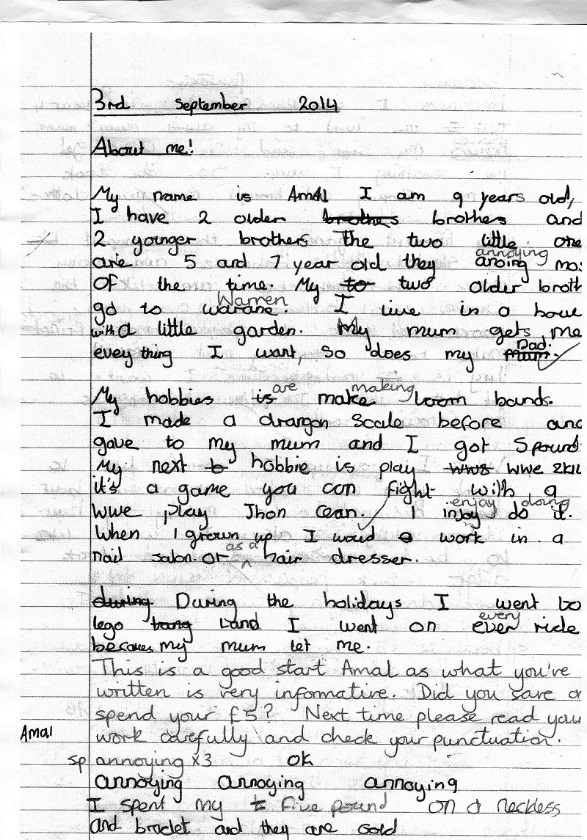 3rd September 2014
About me!
My name is Amal I am 9 years old,
I have 2 older brothes brothers and
2 younger brothers The two little one
are 5 and 7 year old they annoying anoing mos
of the time. My to two older broth
go to Warren warane. I live in a hous
with a little garden. My mum gets me
evey thing I want so does my Dad. mum.
My hobbies is are make making loom bounds.
I made a drangon scale before and
gave to my mum and I got 5 pound
My next to hobbie is play wws wwe 2k12
it's a game you can fight with a
wwe play Jhon cean. I enjoy injoy doing do it.
When I grown up I woud work in a
nail salon or as a hair dresser.
during During the holidays I went to
lego Land I went on every ever ride
becores my mum let me.
This is a good start Amal as what you've
written is very informative. Did you save or
spend your £5? Next time please read your
Amal work carefully and check your punctuation.
sp annoying x3 ok
annoying annoying annoying
I spent my five pound on a neckless
and braclet and they are gold